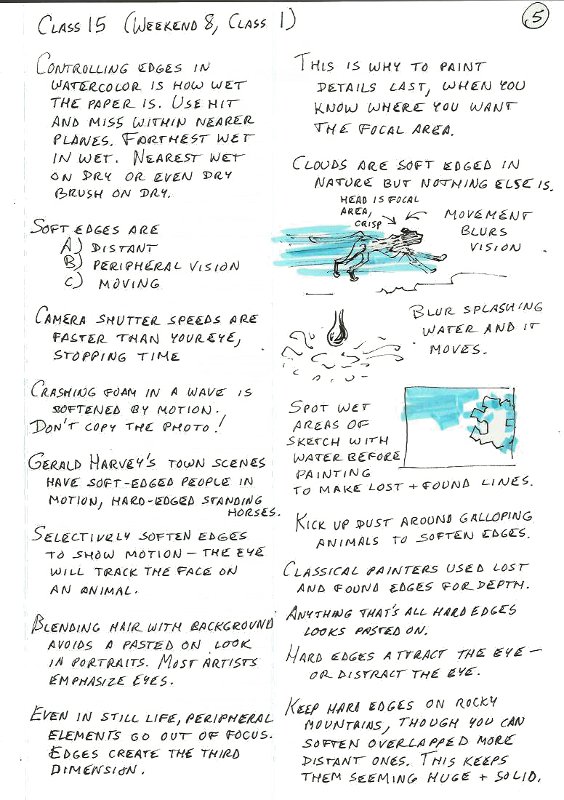 Class 15 (Weekend 8, Class 1)
5
Controlling edges in
watercolor is how wet
the paper is. Use hit
and miss within nearer
planes. Farthest wet
in wet. Nearest wet
on dry or even dry
brush on dry.
Soft edges are
A) distant
B) peripheral vision
C) moving
Camera shutter speeds are
faster than your eye,
stopping time
Crashing foam in a wave is
softened by motion.
Don't copy the photo!
Gerald Harvey's town scenes
have soft-edged people in
motion, hard-edged standing
horses.
Selectively soften edges
to show motion – the eye
will track the face on
an animal.
Blending hair with background
avoids a pasted on look
in portraits. Most artists
emphasize eyes.
Even in still life, peripheral
elements go out of focus.
Edges create the third
dimension.
This is why to paint
details last, when you
know where you want
the focal area.
Clouds are soft edged in
nature but nothing else is.
Head is focal
area,
crisp
Movement
blurs
vision
Blur splashing
water and it
moves.
Spot wet
areas of
sketch with
water before
painting
to make lost + found lines.
Kick up dust around galloping
animals to soften edges.
Classical painters used lost
and found edges for depth.
Anything that's all hard edges
looks pasted on.
Hard edges attract the eye –
or distract the eye.
Keep hard edges on rocky
mountains, though you can
soften overlapped more
distant ones. This keeps
them seeming huge + solid.